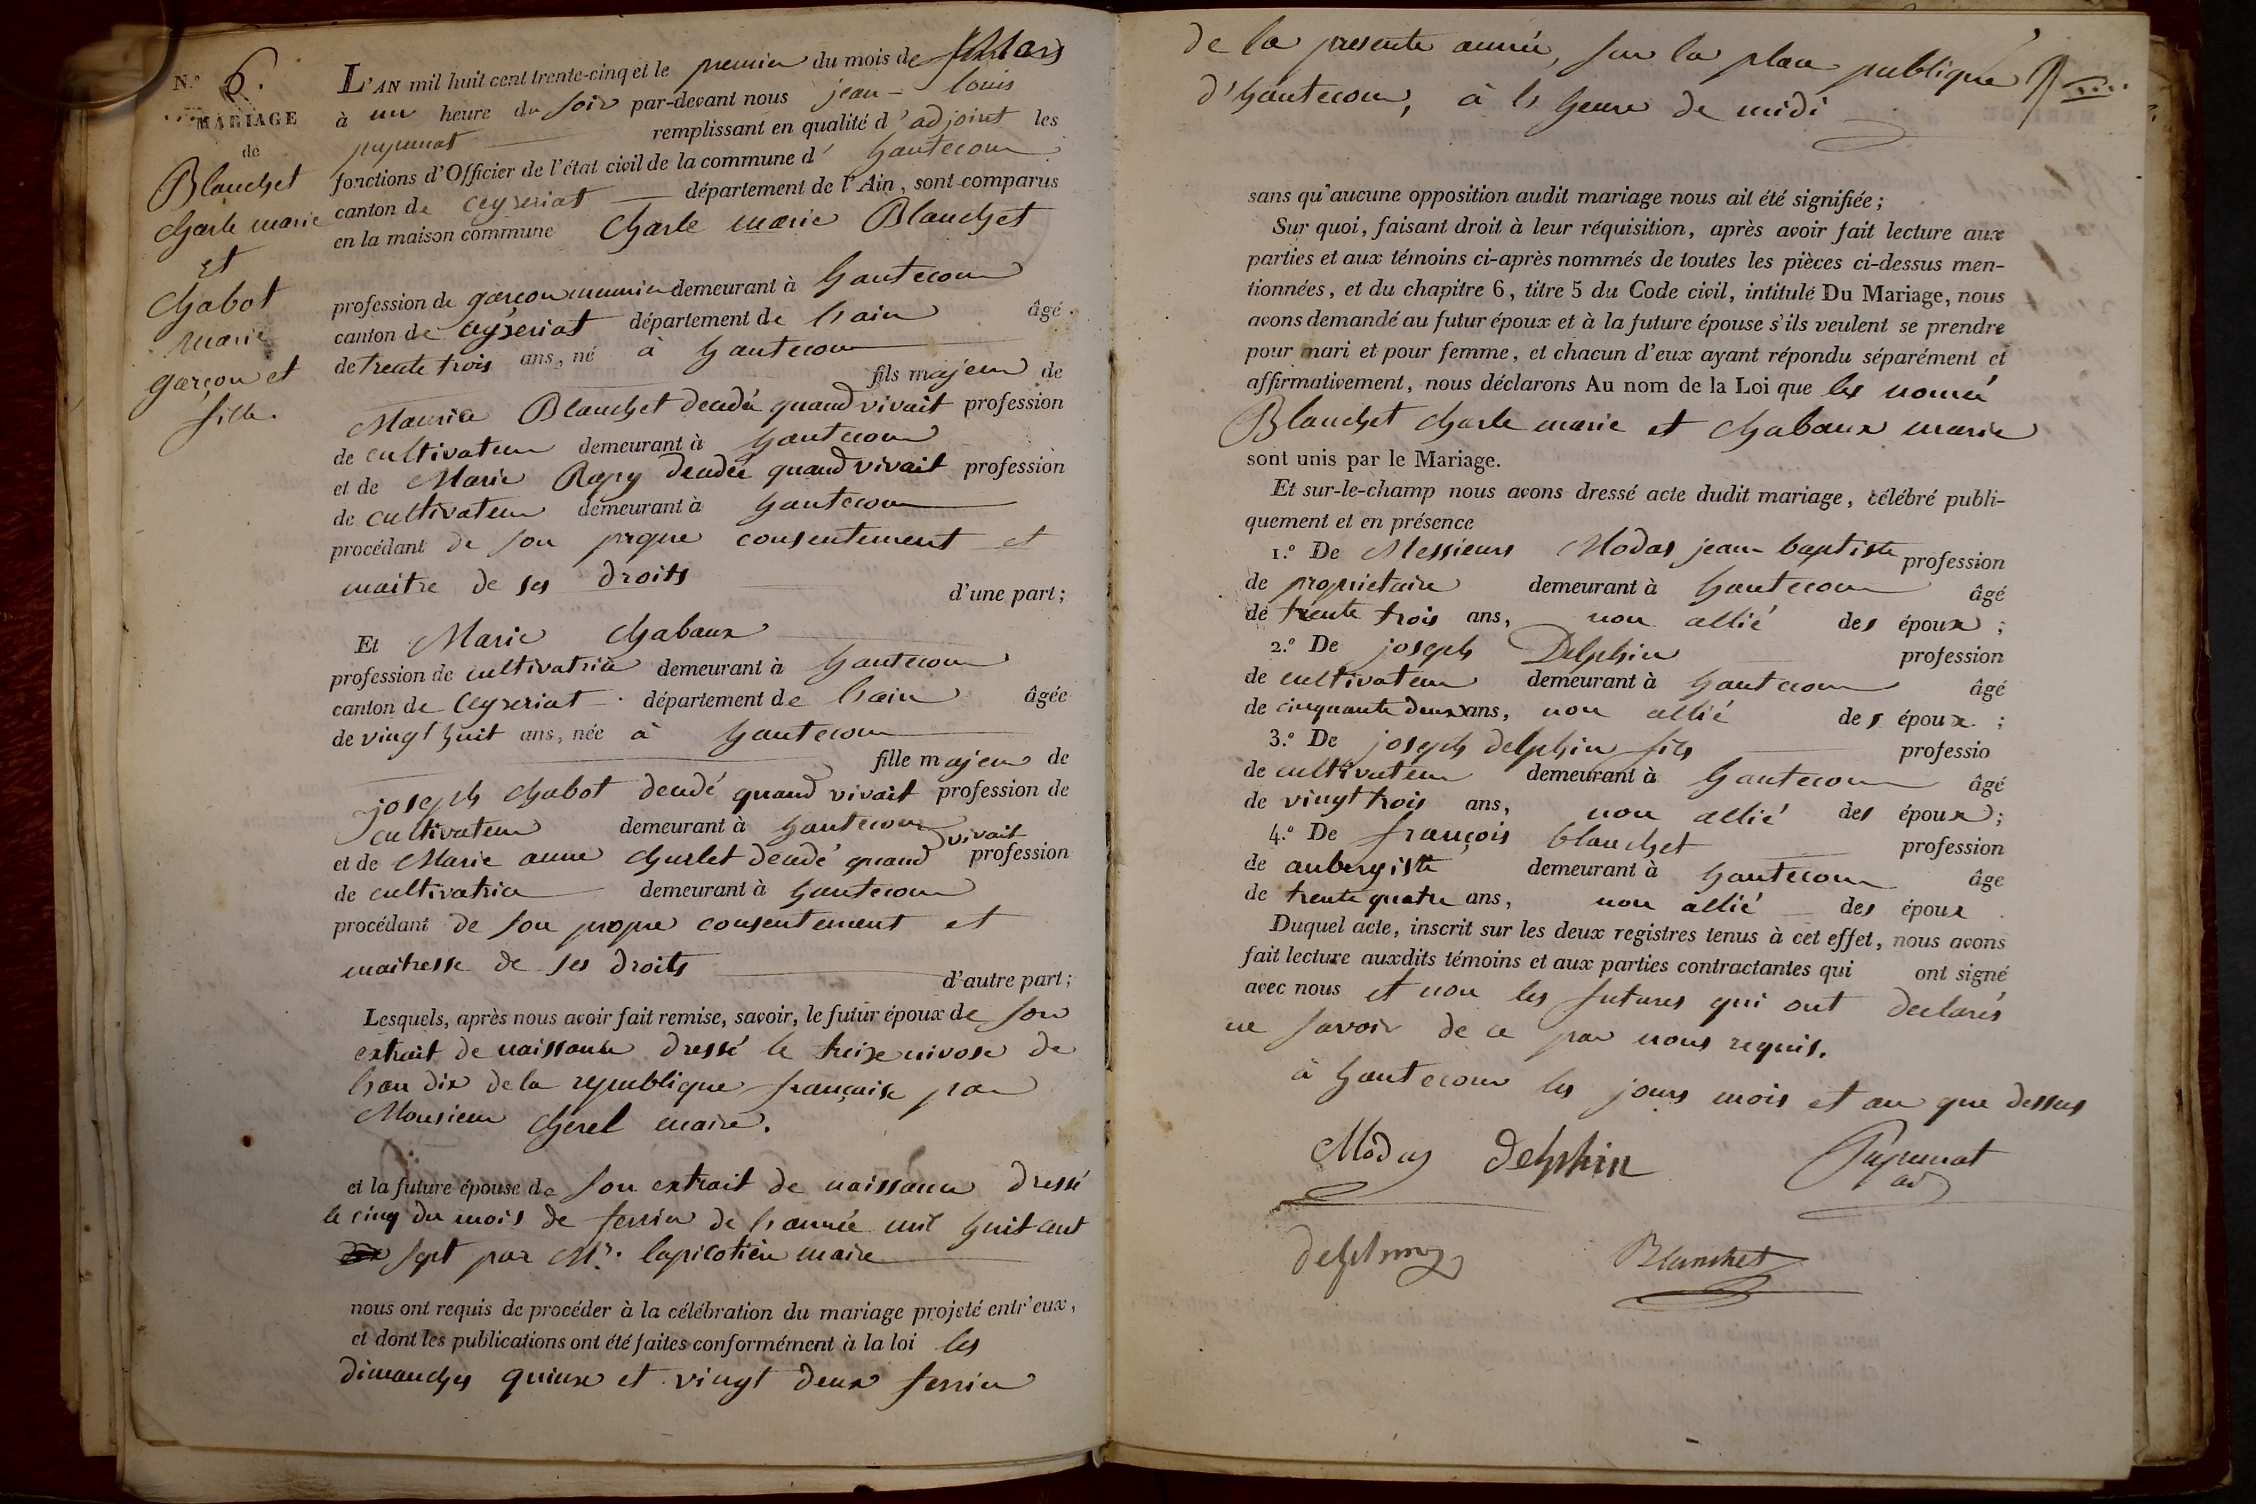 N.º 6.
MARIAGE
de
Blanchet
charle marie
et
chabot
marie
garçon et
fille.
L'AN mil huit cent trente-cinq et le premier du mois de Mars
à un heure du soir par-devant nous jean-louis
puquenat remplissant en qualité d'adjoint les
fonctions d'Officier de l'état civil de la commune d' hautecour
canton de ceyzeriat département de l'Ain, sont comparus
en la maison commune Charle marie Blanchet
profession de garçon meunier demeurant à hautecour
canton de ceyzeriat département de l'ain âgé
de trente trois ans, né à hautecour
fils majeur de
Maurice Blanchet décédé quand vivait profession
de cultivateur demeurant à hautecour
et de Marie Rapy décédée quand vivait profession
de cultivateur demeurant à hautecour
procédant de son propre consentement et
maitre de ses droits d'une part;
Et Marie chabaux
profession de cultivatrice demeurant à hautecour
canton de ceyzeriat département de l'ain âgée
de vingt huit ans, née à hautecour
fille majeur de
joseph chabot décédé quand vivait profession de
cultivateur demeurant à hautecour
et de Marie anne churlet décédé quand vivait profession
de cultivatrice demeurant à hautecour
procédant de son propre consentement et
maitresse de ses droits d'autre part;
Lesquels, après nous avoir fait remise, savoir, le futur époux de son
extrait de naissance dressé le treize nivose de
l'an dix de la republique française par
Monsieur cherel maire.
et la future épouse de son extrait de naissance dressé
le cinq du mois de ferrier de l'année mil huit cent
sept par Mr. lapicotière maire
nous ont requis de procéder à la célébration du mariage projeté entr'eux,
et dont les publications ont été faites conformément à la loi les
dimanches quinze et vingt deux ferrier
de la presente année, sur la place publique
d'hautecour, à l'heure de midi
sans qu'aucune opposition audit mariage nous ait été signifiée;
Sur quoi, faisant droit à leur réquisition, après avoir fait lecture aux
parties et aux témoins ci-après nommés de toutes les pièces ci-dessus men-
tionnées, et du chapitre 6, titre 5 du Code civil, intitulé Du Mariage, nous
avons demandé au futur époux et à la future épouse s'ils veulent se prendre
pour mari et pour femme, et chacun d'eux ayant répondu séparément et
affirmativement, nous déclarons Au nom de la Loi que les nomé
Blanchet charle marie et chabaux marie
sont unis par le Mariage.
Et sur-le-champ nous avons dressé acte dudit mariage, célébré publi-
quement et en présence
1.º De Messieurs Modas jean baptiste profession
de propriétaire demeurant à hautecour âgé
de trente trois ans, non allié des époux;
2.º De joseph Delphin profession
de cultivateur demeurant à hautecour âgé
de cinquante deux ans, non allié des époux;
3.º De joseph delphin fils professio
de cultivateur demeurant à hautecour âgé
de vingt trois ans, non allié des époux;
4.º De françois blanchet profession
de aubergiste demeurant à hautecour âge
de trente quatre ans, non allié des époux
Duquel acte, inscrit sur les deux registres tenus à cet effet, nous avons
fait lecture auxdits témoins et aux parties contractantes qui ont signé
avec nous et non les futures qui ont declarés
ne savoir de ce par nous requis.
à hautecour les jours mois et an que dessus
Modas Delphin Puquenat
ad
delphin
Blanchet